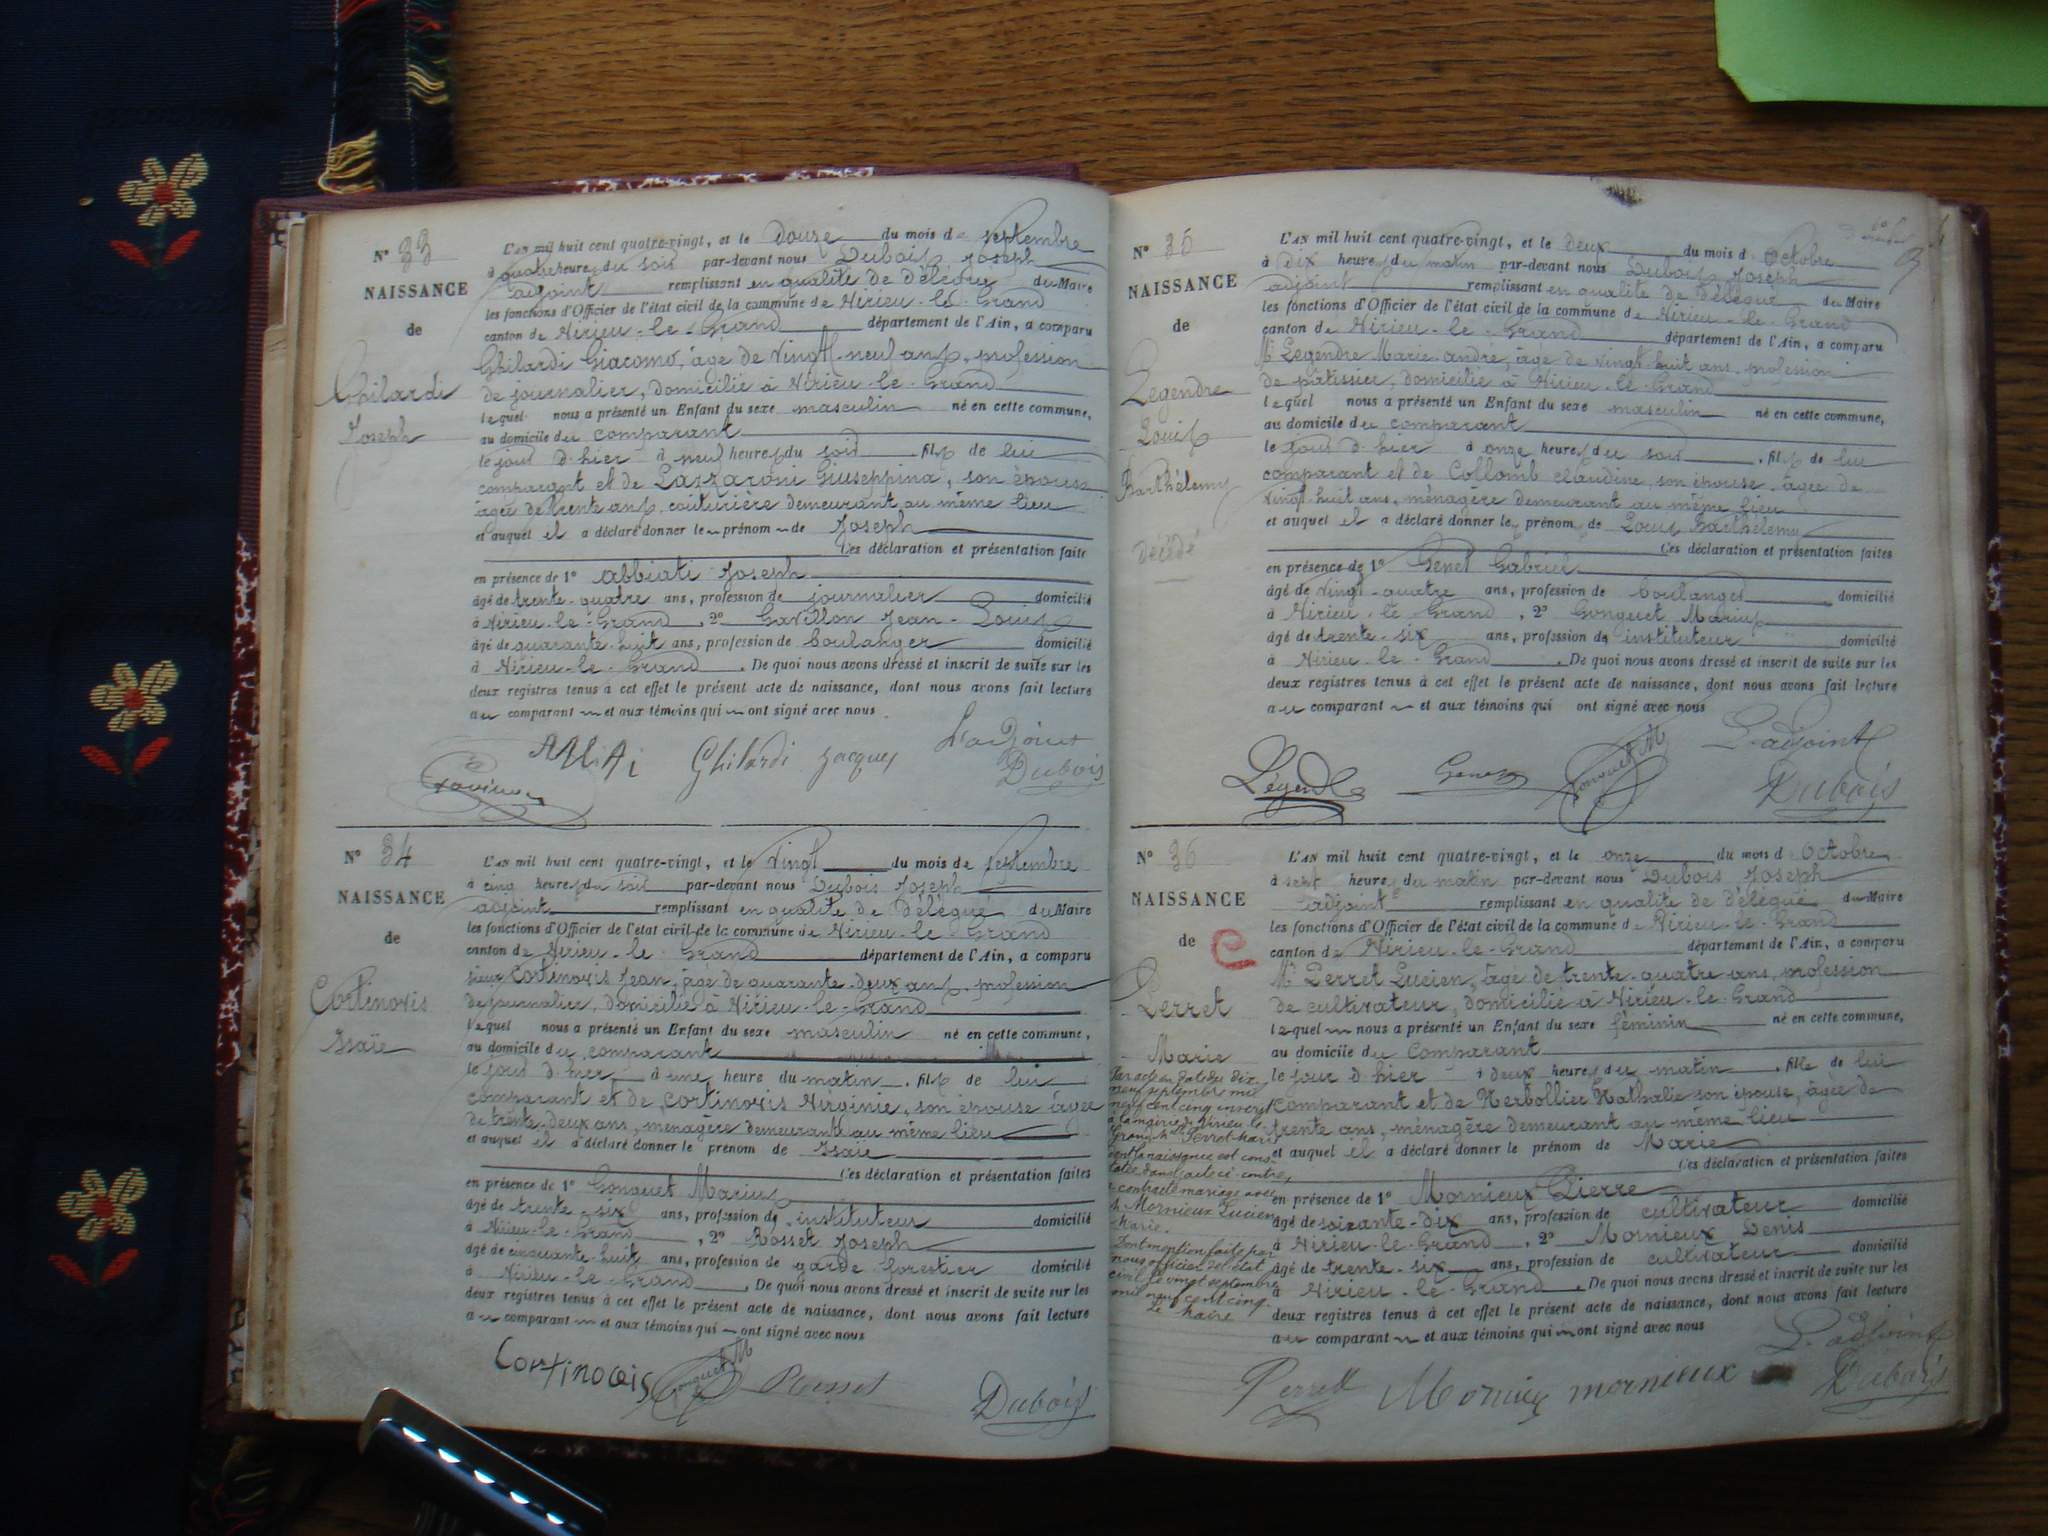 N° 33
NAISSANCE
de
Ghilardi
Joseph
L'AN mil huit cent quatre-vingt, et le douze du mois de septembre
à quatre heures du soir par-devant nous Dubois Joseph
adjoint remplissant en qualité de délégué du Maire
les fonctions d'Officier de l'état civil de la commune de Virieu-le-Grand
canton de Virieu-le-Grand département de l'Ain, a comparu
Ghilardi Giacomo, âgé de vingt-neuf ans, profession
de journalier, domicilié à Virieu-le-Grand
lequel nous a présenté un Enfant du sexe masculin né en cette commune,
au domicile du comparant
le jour d'hier à neuf heures du soir, fils de lui
comparant et de Lazzaroni Giuseppina, son épouse
âgée de trente ans, couturière demeurant au même lieu
et auquel il a déclaré donner le prénom de Joseph
Ces déclaration et présentation faites
en présence de 1° Abbiati Joseph
âgé de trente-quatre ans, profession de journalier domicilié
à Virieu-le-Grand, 2° Gavillon Jean-Louis
âgé de quarante-huit ans, profession de boulanger domicilié
à Virieu-le-Grand. De quoi nous avons dressé et inscrit de suite sur les
deux registres tenus à cet effet le présent acte de naissance, dont nous avons fait lecture
au comparant et aux témoins qui ont signé avec nous
Ghilardi Jacques
L'adjoint
Dubois
N° 34
NAISSANCE
de
Cortinovis
Isaïe
L'AN mil huit cent quatre-vingt, et le vingt du mois de septembre
à cinq heures du soir par-devant nous Dubois Joseph
adjoint remplissant en qualité de délégué du Maire
les fonctions d'Officier de l'état civil de la commune de Virieu-le-Grand
canton de Virieu-le-Grand département de l'Ain, a comparu
sieur Cortinovis Jean, âgé de quarante-deux ans, profession
de journalier, domicilié à Virieu-le-Grand
lequel nous a présenté un Enfant du sexe masculin né en cette commune,
au domicile du comparant
le jour d'hier à une heure du matin, fils de lui
comparant et de Cortinovis Virginie, son épouse âgée
de trente-deux ans, ménagère demeurant au même lieu
et auquel il a déclaré donner le prénom de Isaïe
Ces déclaration et présentation faites
en présence de 1° Gonguet Marius
âgé de trente-six ans, profession de instituteur domicilié
à Virieu-le-Grand, 2° Rosset Joseph
âgé de cinquante-huit ans, profession de garde forestier domicilié
à Virieu-le-Grand. De quoi nous avons dressé et inscrit de suite sur les
deux registres tenus à cet effet le présent acte de naissance, dont nous avons fait lecture
au comparant et aux témoins qui ont signé avec nous
Cortinovis Gonguet M Rosset Dubois
N° 35
NAISSANCE
de
Legendre
Louis
Barthélemy
Décédé
L'AN mil huit cent quatre-vingt, et le deux du mois d'Octobre
à dix heures du matin par-devant nous Dubois Joseph
adjoint remplissant en qualité de délégué du Maire
les fonctions d'Officier de l'état civil de la commune de Virieu-le-Grand
canton de Virieu-le-Grand département de l'Ain, a comparu
Mr Legendre Marie-andré, âgé de vingt-huit ans, profession
de patissier, domicilié à Virieu-le-Grand
lequel nous a présenté un Enfant du sexe masculin né en cette commune,
au domicile du comparant
le jour d'hier à onze heures du soir, fils de lui
comparant et de Collomb Claudine, son épouse, âgée de
vingt-huit ans, ménagère demeurant au même lieu
et auquel il a déclaré donner les prénoms de Louis Barthélemy
Ces déclaration et présentation faites
en présence de 1° Genet Gabriel
âgé de vingt-quatre ans, profession de boulanger domicilié
à Virieu-le-Grand, 2° Gonguet Marius
âgé de trente-six ans, profession de instituteur domicilié
à Virieu-le-Grand. De quoi nous avons dressé et inscrit de suite sur les
deux registres tenus à cet effet le présent acte de naissance, dont nous avons fait lecture
au comparant et aux témoins qui ont signé avec nous
L'adjoint
Genet Gonguet M Dubois
N° 36
NAISSANCE
de
Perret
Marie
Par acte en date du dix
neuf septembre mil
neuf cent cinq inscrit
à la mairie de Virieu-le-
Grand Mlle Perret Marie
dont la naissance est cons
tatée dans l'acte ci-contre,
a contracté mariage avec
M. Mornieux Lucien
Marie.
Dont mention faite par
nous officier de l'état
civil le vingt septembre
mil neuf cent cinq.
Le Maire
L'AN mil huit cent quatre-vingt, et le onze du mois d'Octobre
à sept heures du matin par-devant nous Dubois Joseph
adjoint remplissant en qualité de délégué du Maire
les fonctions d'Officier de l'état civil de la commune de Virieu-le-Grand
canton de Virieu-le-Grand département de l'Ain, a comparu
Mr Perret Lucien, âgé de trente-quatre ans, profession
de cultivateur, domicilié à Virieu-le-Grand
lequel nous a présenté un Enfant du sexe féminin né en cette commune,
au domicile du Comparant
le jour d'hier à deux heures du matin, fille de lui
Comparant et de Herbollier Nathalie son épouse, âgée de
trente ans, ménagère demeurant au même lieu
et auquel il a déclaré donner le prénom de Marie
Ces déclaration et présentation faites
en présence de 1° Mornieux Pierre
âgé de soixante-dix ans, profession de cultivateur domicilié
à Virieu-le-Grand, 2° Mornieux Denis
âgé de trente-six ans, profession de cultivateur domicilié
à Virieu-le-Grand. De quoi nous avons dressé et inscrit de suite sur les
deux registres tenus à cet effet le présent acte de naissance, dont nous avons fait lecture
au comparant et aux témoins qui ont signé avec nous
L'adjoint
Perret Mornieux mornieux Dubois